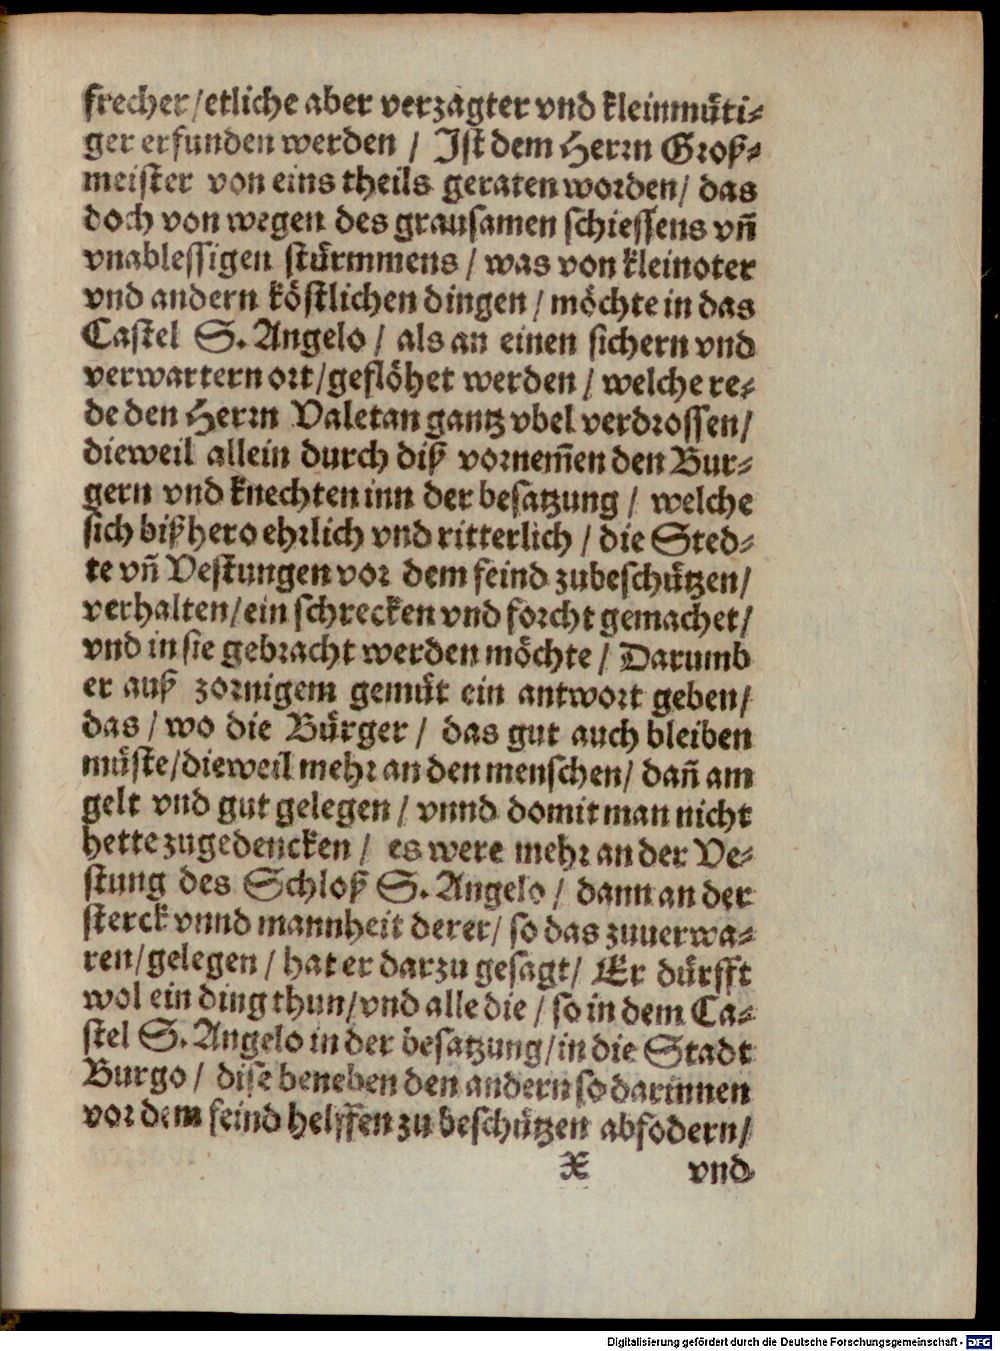 frecher / etliche aber verzagter vnd kleinmuͤti⸗
ger erfunden werden / Ist dem Herrn Groß⸗
meister von eins theils geraten worden / das
doch von wegen des grausamen schiessens vñ
vnablessigen stuͤrmmens / was von kleinoter
vnd andern koͤstlichen dingen / moͤchte in das
Castel S. Angelo / als an einen sichern vnd
verwartern ort / gefloͤhet werden / welche re⸗
de den Herrn Valetan gantz vbel verdrossen /
dieweil allein durch diß vornem̃en den Bur⸗
gern vnd knechten inn der besatzung / welche
sich bißhero ehrlich vnd ritterlich / die Sted⸗
te vñ Vestungen vor dem feind zubeschuͤtzen /
verhalten / ein schrecken vnd forcht gemachet /
vnd in sie gebracht werden moͤchte / Darumb
er auß zornigem gemuͤt ein antwort geben /
das / wo die Buͤrger / das gut auch bleiben
muͤste / dieweil mehr an den menschen / dañ am
gelt vnd gut gelegen / vnnd domit man nicht
hette zugedencken / es were mehr an der Ve⸗
stung des Schloß S. Angelo / dann an der
sterck vnnd mannheit derer / so das zuuerwa⸗
ren / gelegen / hat er darzu gesagt / Er duͤrfft
wol ein ding thun / vnd alle die / so in dem Ca⸗
stel S. Angelo in der besatzung / in die Stadt
Burgo / dise beneben den andern so darinnen
vor dem feind helffen zu beschuͤtzen abfodern /
X vnd
Digitalisierung gefördert durch die Deutsche Forschungsgemeinschaft - DFG